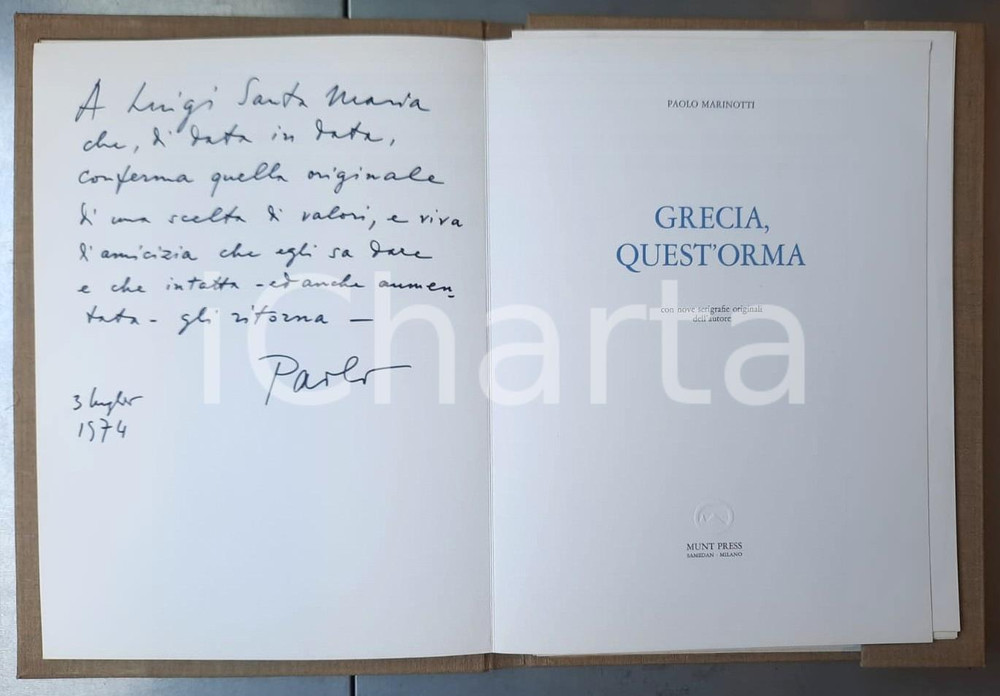 A Luigi Santa Maria
che, di data in data,
conferma quella originale
di una scelta di valori, e viva
l'amicizia che egli sa dare
e che intatta - ed anche aumen-
tata - gli ritorna —
Paolo
3 luglio
1974
PAOLO MARINOTTI
GRECIA,
QUEST'ORMA
con nove serigrafie originali
dell'autore
MUNT PRESS
SAMEDAN - MILANO
iCharta